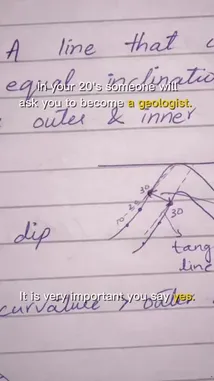 A line that
equal inclinatio
in your 20's someone will
ask you to become a geologist.
outer & inner
30
30
dip
tang
line
It is very important you say yes.
curvature > outer